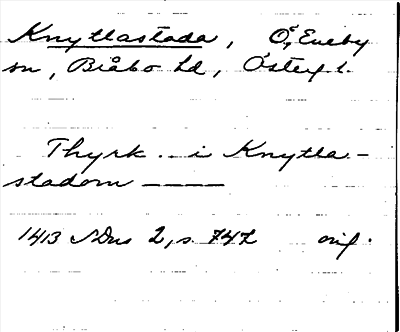 Knytlastada, Ö, Eneby
sn, Bråbo hd, Östergl.
Thyrk . . i Knytla-
stadom ———
1413 SDns 2, s. 747 orig.